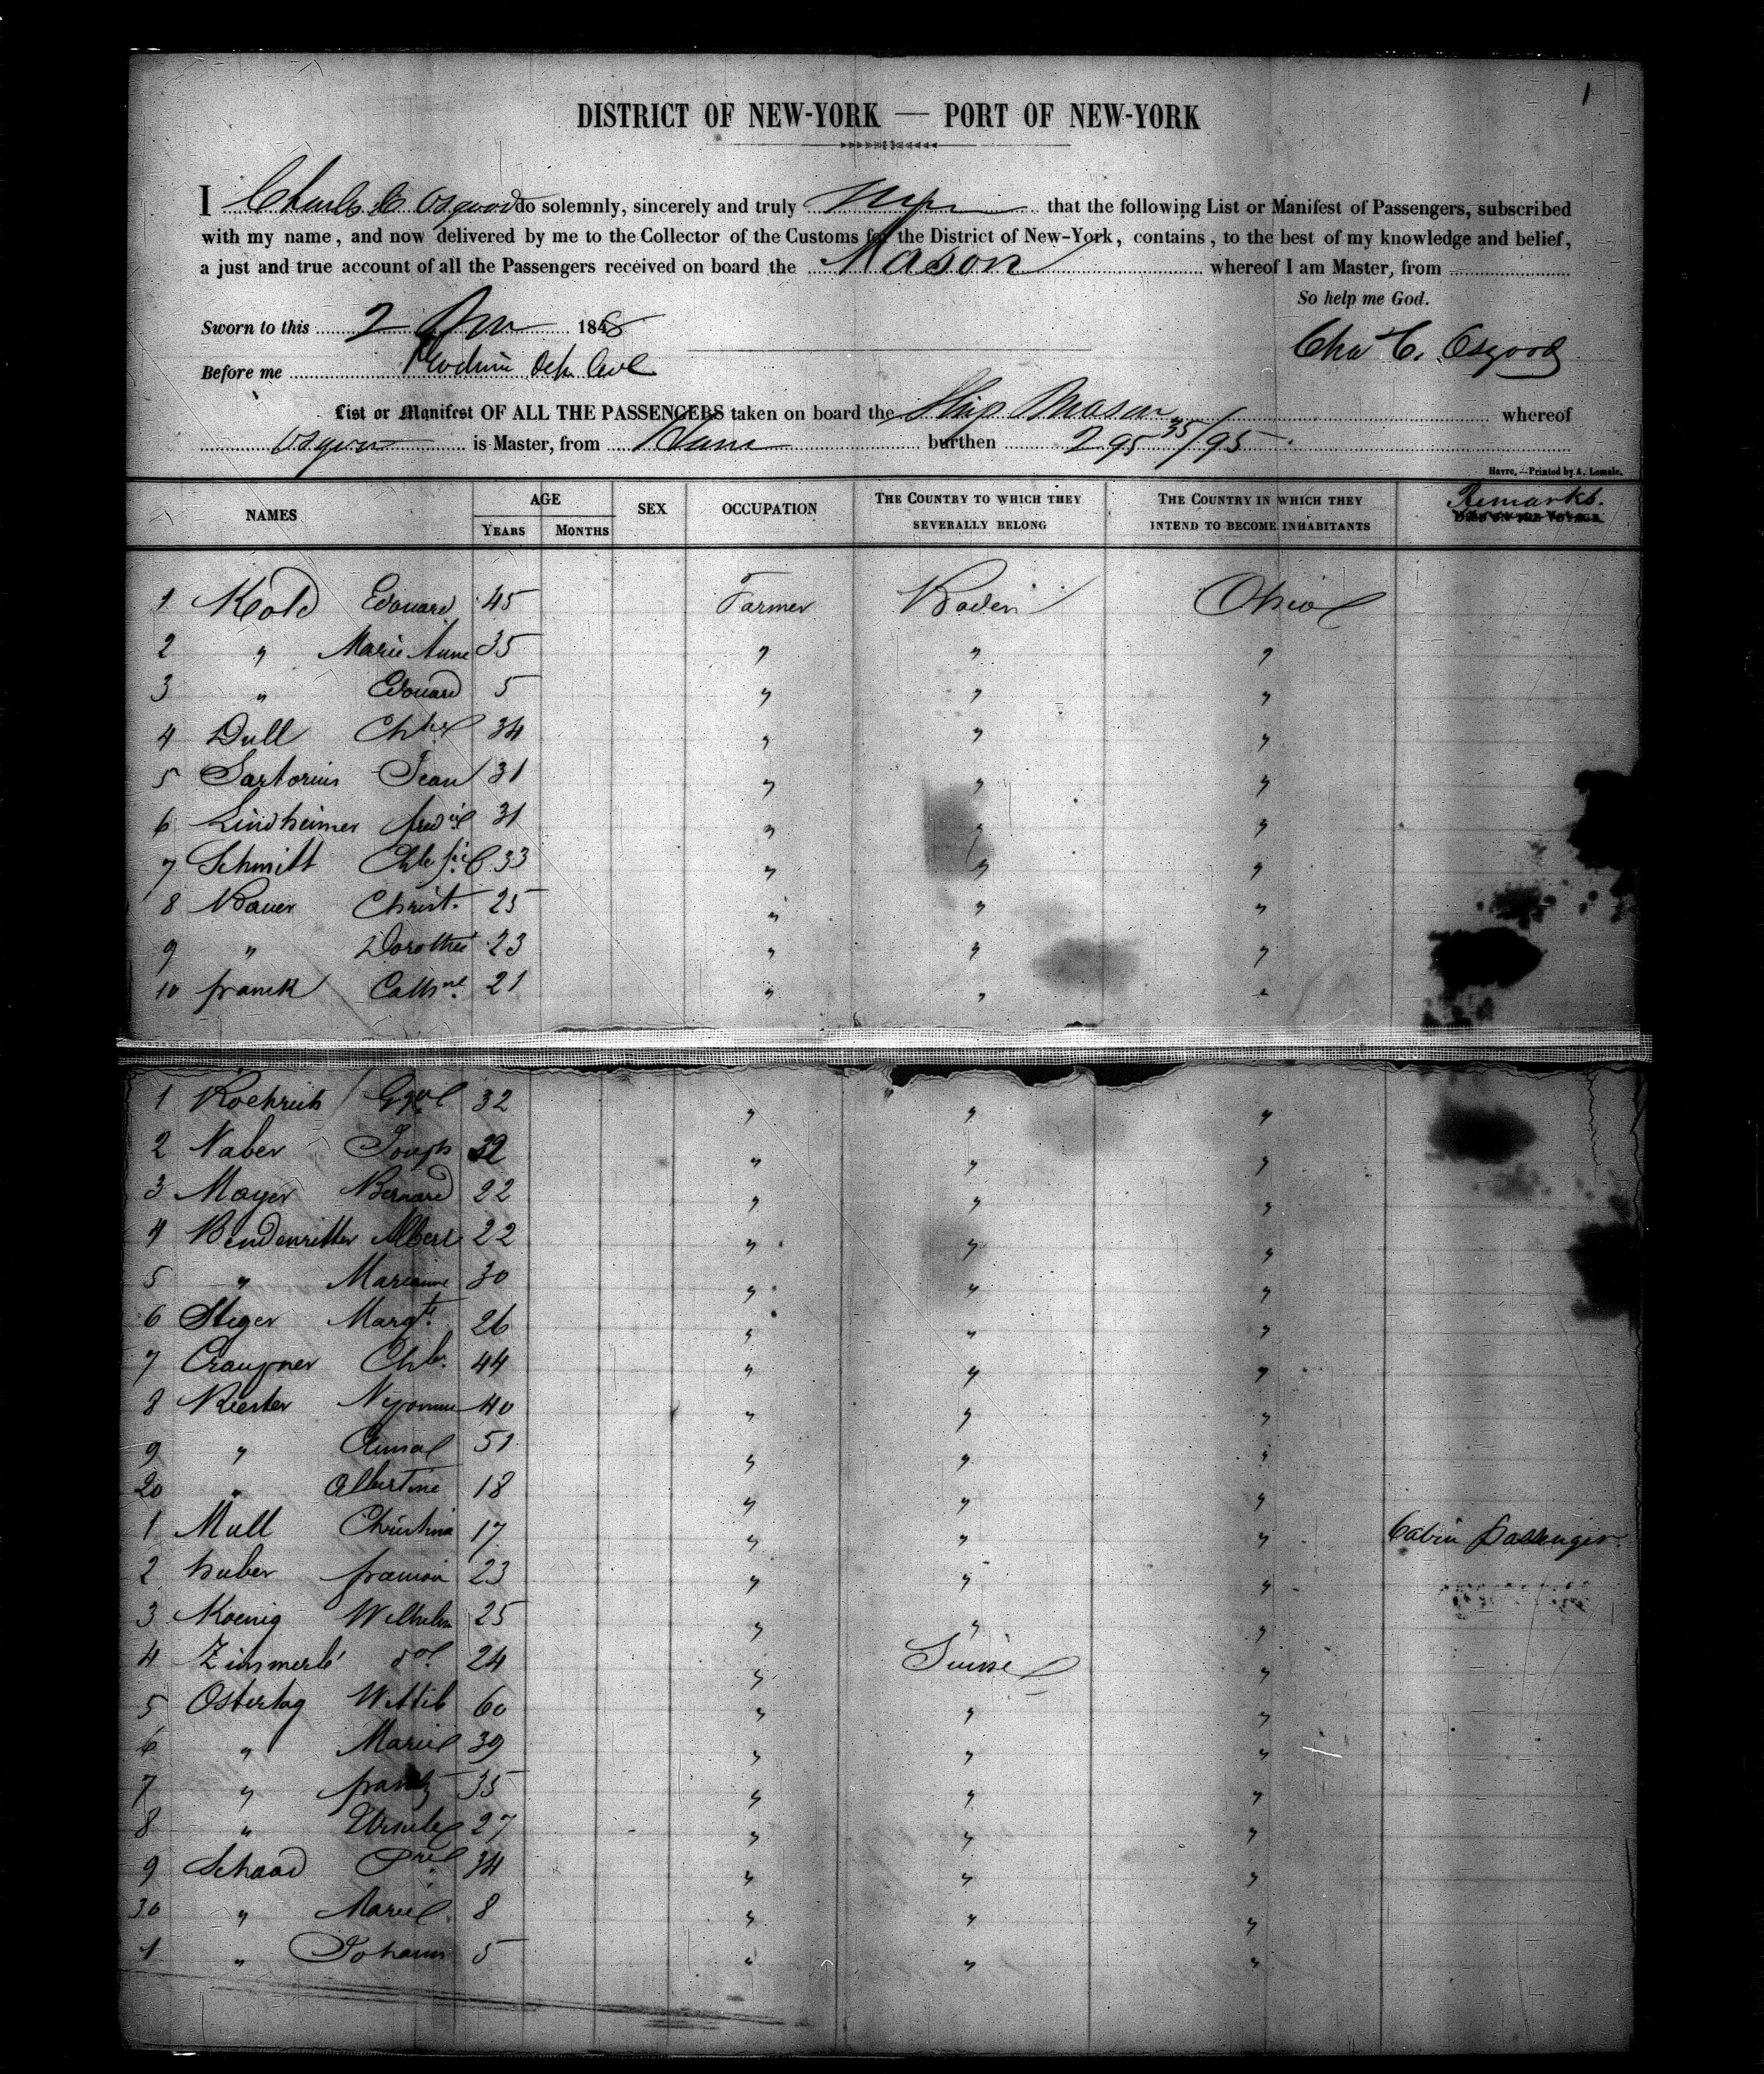 1
DISTRICT OF NEW-YORK — PORT OF NEW-YORK
I Charles C Osgood do solemnly, sincerely and truly that the following List or Manifest of Passengers, subscribed
with my name, and now delivered by me to the Collector of the Customs for the District of New-York, contains, to the best of my knowledge and belief,
a just and true account of all the Passengers received on board the Mason whereof I am Master, from
So help me God.
Sworn to this 2 1848
Chas C. Osgood
Before me
List or Manifest OF ALL THE PASSENGERS taken on board the Ship Mason whereof
Osgood is Master, from Havre burthen 295 35/95
Havre.—Printed by A. Lemale.
NAMES AGE YEARS MONTHS SEX OCCUPATION THE COUNTRY TO WHICH THEY SEVERALLY BELONG THE COUNTRY IN WHICH THEY INTEND TO BECOME INHABITANTS Remarks.
1 Kold Edouard 45 Farmer Baden Ohio
2 " Marie Anne 35 " " "
3 " Edouard 5 " " "
4 Dull 34 " " "
5 Sartorius Jean 31 " " "
6 Lindheimer 31 " " "
7 Schmitt 33 " " "
8 Bauer Christ. 25 " " "
9 " Dorothée 23 " " "
10 franck Cathne. 21 " " "
1 Roehrich 32 " " "
2 Naber Joseph 32 " " "
3 Mayer Bernard 22 " " "
4 Bendenritter Albert 22 " " "
5 " Marianne 30 " " "
6 Steger Margte. 26 " " "
7 Graupner Chle. 44 " " "
8 Riester 40 " " "
9 " Anna 51 " " "
20 " Albertine 18 " " "
1 Mull Christina 17 " " " Cabin Passenger
2 huber 23 " " "
3 Koenig Wilhelm 25 " " "
4 Zimmerlé 24 " Suisse "
5 Ostertag Wittib 60 " " "
6 " Marie 39 " " "
7 " frantz 35 " " "
8 " Ursule 27 " " "
9 Schaad 34 " " "
30 " Marie 8 " " "
1 " Johann 5 " " "